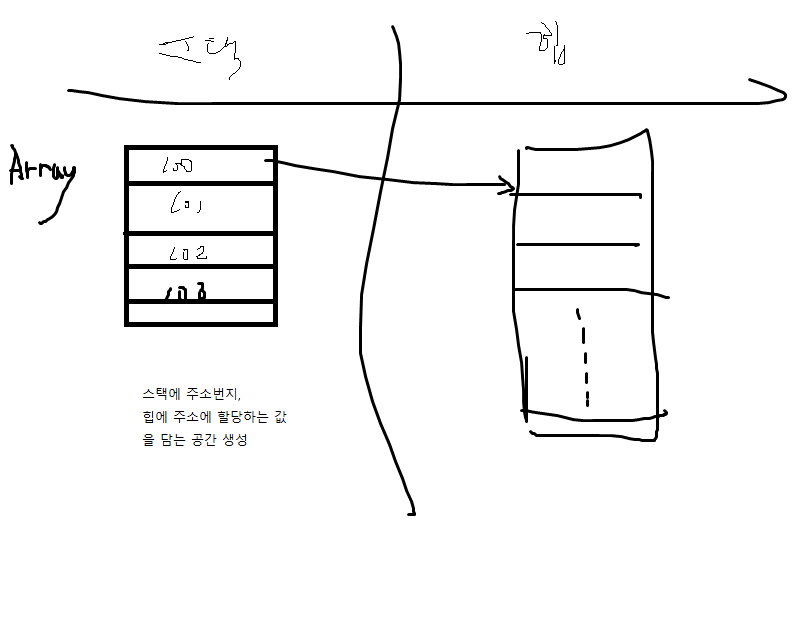 스택
힙
Array
100
101
102
103
스택에 주소번지,
힙에 주소에 할당하는 값
을 담는 공간 생성